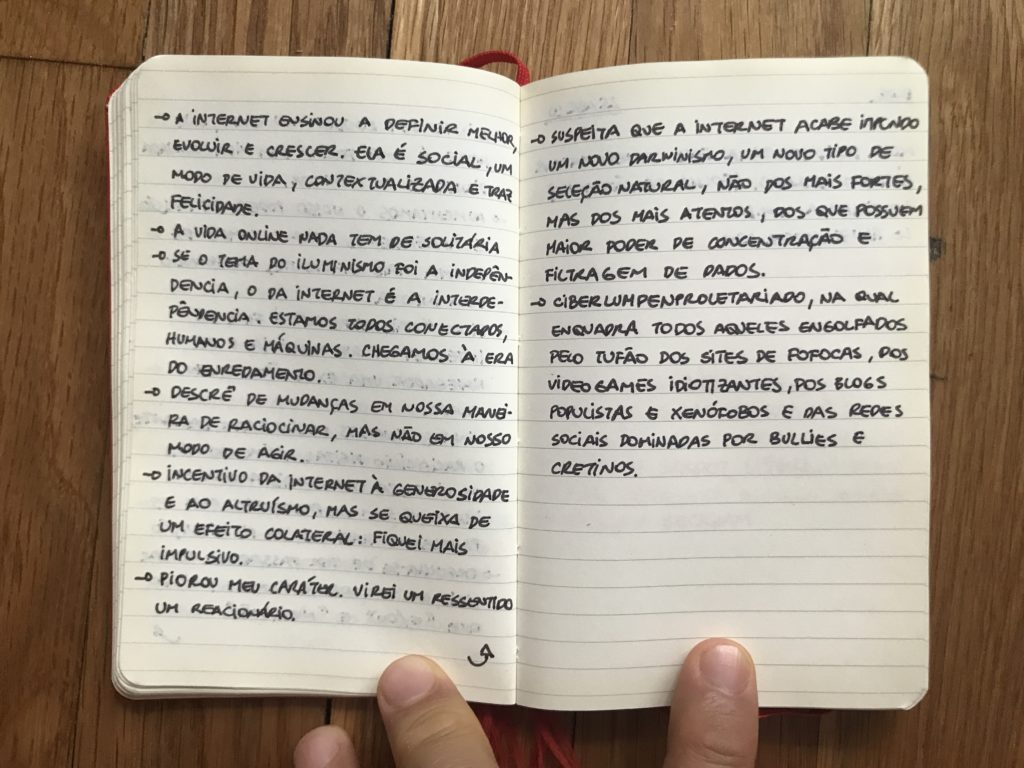 → A INTERNET ENSINOU A DEFINIR MELHOR,
EVOLUIR E CRESCER. ELA É SOCIAL, UM
MODO DE VIDA, CONTEXTUALIZADA E TRAZ
FELICIDADE.
→ A VIDA ONLINE NADA TEM DE SOLITÁRIA
→ SE O TEMA DO ILUMINISMO FOI A INDEPÊN-
DENCIA, O DA INTERNET É A INTERDE-
PÊNDENCIA. ESTAMOS TODOS CONECTADOS,
HUMANOS E MÁQUINAS. CHEGAMOS À ERA
DO ENREDAMENTO.
→ DESCRÊ DE MUDANÇAS EM NOSSA MANEI-
RA DE RACIOCINAR, MAS NÃO EM NOSSO
MODO DE AGIR.
→ INCENTIVO DA INTERNET À GENEROSIDADE
E AO ALTRUÍSMO, MAS SE QUEIXA DE
UM EFEITO COLATERAL: FIQUEI MAIS
IMPULSIVO.
→ PIOROU MEU CARÁTER. VIREI UM RESSENTIDO
UM REACIONÁRIO.
→ SUSPEITA QUE A INTERNET ACABE IMPONDO
UM NOVO DARWINISMO, UM NOVO TIPO DE
SELEÇÃO NATURAL, NÃO DOS MAIS FORTES,
MAS DOS MAIS ATENTOS, DOS QUE POSSUEM
MAIOR PODER DE CONCENTRAÇÃO E
FILTRAGEM DE DADOS.
→ CIBERLUMPENPROLETARIADO, NA QUAL
ENQUADRA TODOS AQUELES ENGOLFADOS
PELO TUFÃO DOS SITES DE FOFOCAS, DOS
VIDEOGAMES IDIOTIZANTES, DOS BLOGS
POPULISTAS E XENÓFOBOS E DAS REDES
SOCIAIS DOMINADAS POR BULLIES E
CRETINOS.